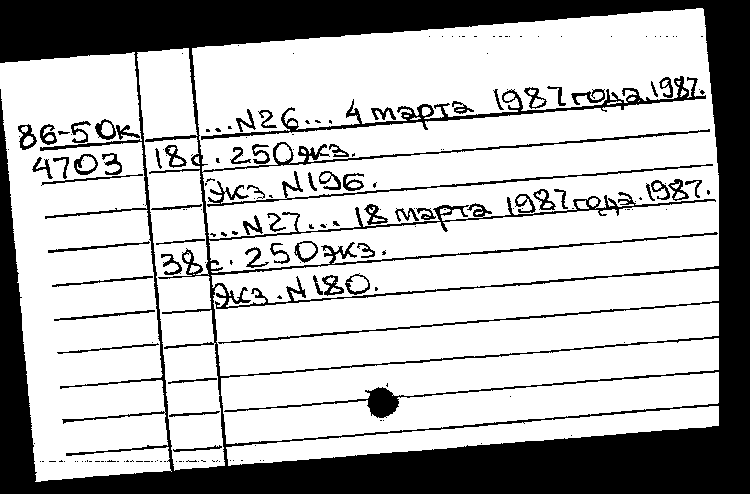 86-50к ...N26... 4 марта 1987 года. 1987.
4703 18с. 250экз.
Экз. N196.
...N27... 18 марта 1987 года. 1987.
38с. 250экз.
Экз. N180.